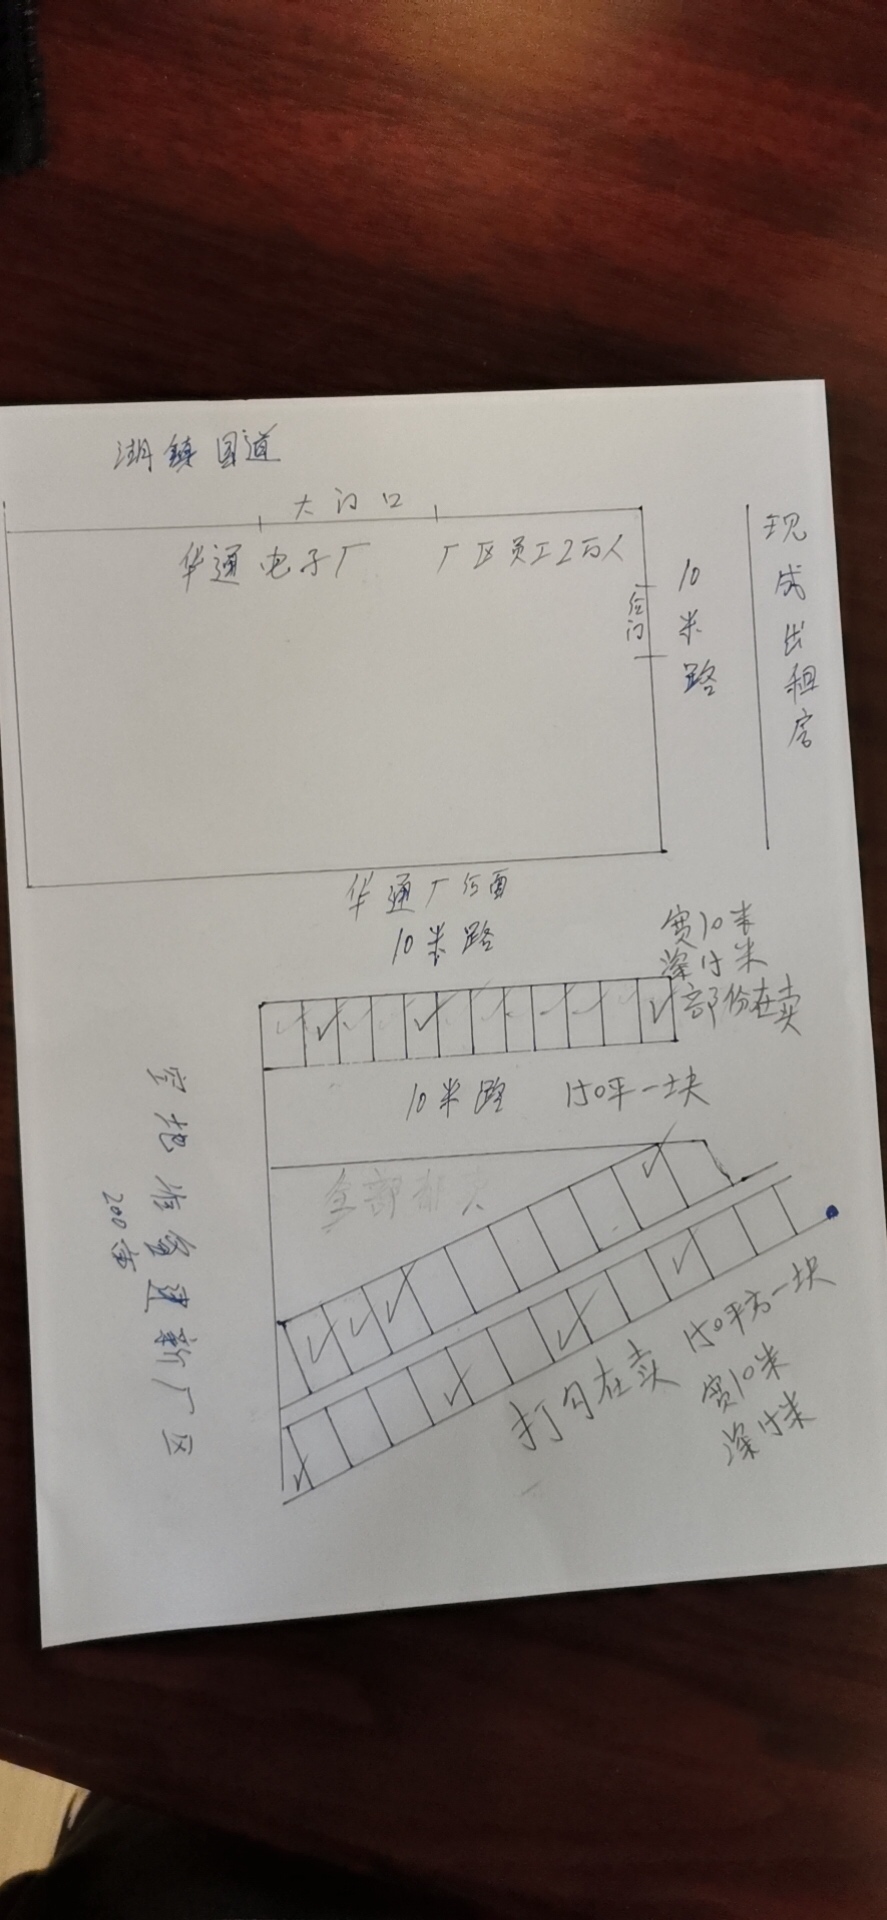 湖镇国道
大门口
华通电子厂 厂区员工2万人
后门
10米路
现成出租房
华通厂后面
10米路
宽10米
深15米
部份在卖
10米路 150平一块
全部都卖
空地准备建新厂区
200亩
打勾在卖 150平方一块
宽10米
深15米